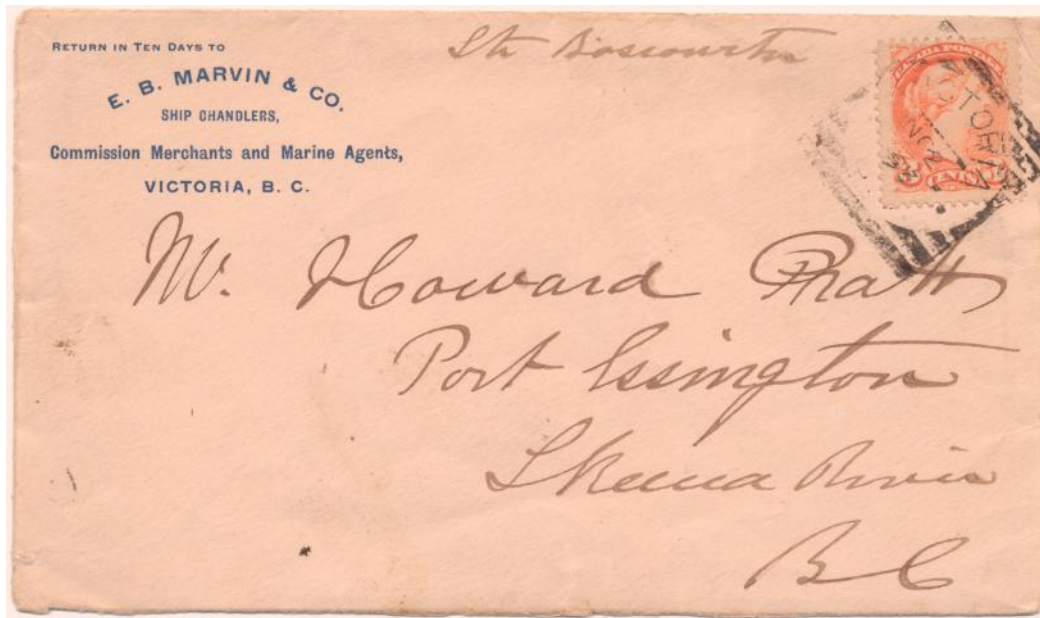 RETURN IN TEN DAYS TO
E. B. MARVIN & CO.
SHIP CHANDLERS,
Commission Merchants and Marine Agents,
VICTORIA, B. C.
Str Boscowitz
CANADA POSTAGE
VICTORIA
NO 2
93
CENTS
Mr. Howard Pratt
Port Essington
Skeena River
B C